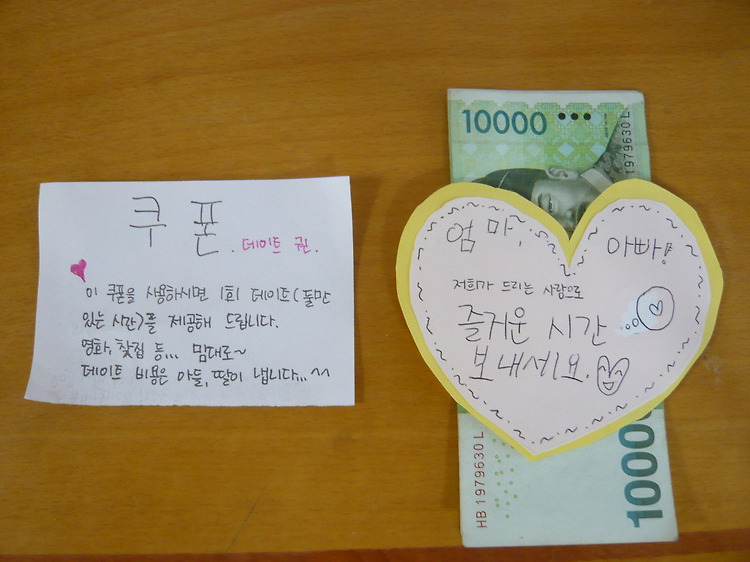 쿠폰
. 데이트 권.
이 쿠폰을 사용하시면 1회 데이트(둘만
있는 시간)를 제공해 드립니다.
영화, 찻집 등... 맘대로~
데이트 비용은 아들, 딸이 냅니다...^^
엄마, 아빠!
저희가 드리는 사랑으로
즐거운 시간
보내세요.
10000
1979630 L
HB 1979630 L
10000